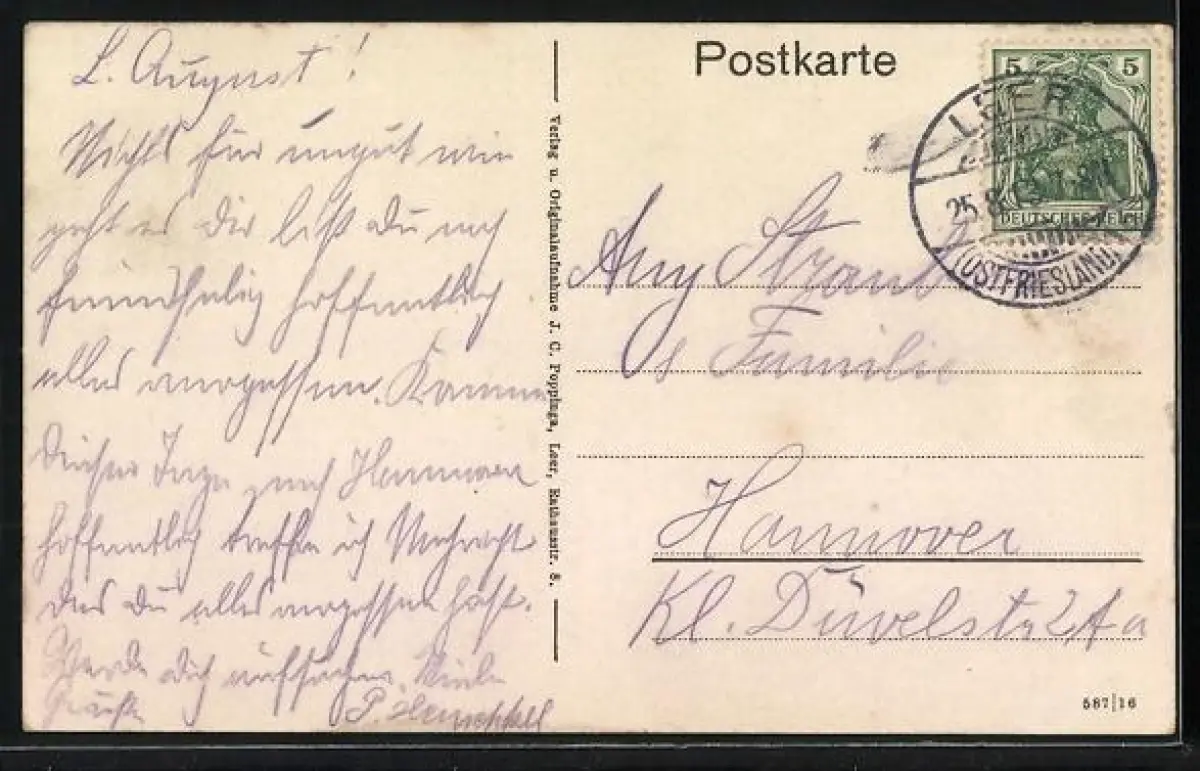 L. August!
Nichts für ungut wie
geht es Dir bist du noch
feindselig hoffentlich
alles vergessen. Komme
dieser Tage nach Hannover
hoffentlich treffe ich
das du alles vergessen hast.
Werde dich aufsuchen. Viele
Grüße P.
Verlag u. Originalaufnahme J. C. Poppinga, Leer, Rathausstr. 8.
Postkarte
5 5
DEUTSCHES REICH
LEER
25.8.
(OSTFRIESLAND)
Aug Straub
Familie
Hannover
Kl. Düvelstr 24a
587|16